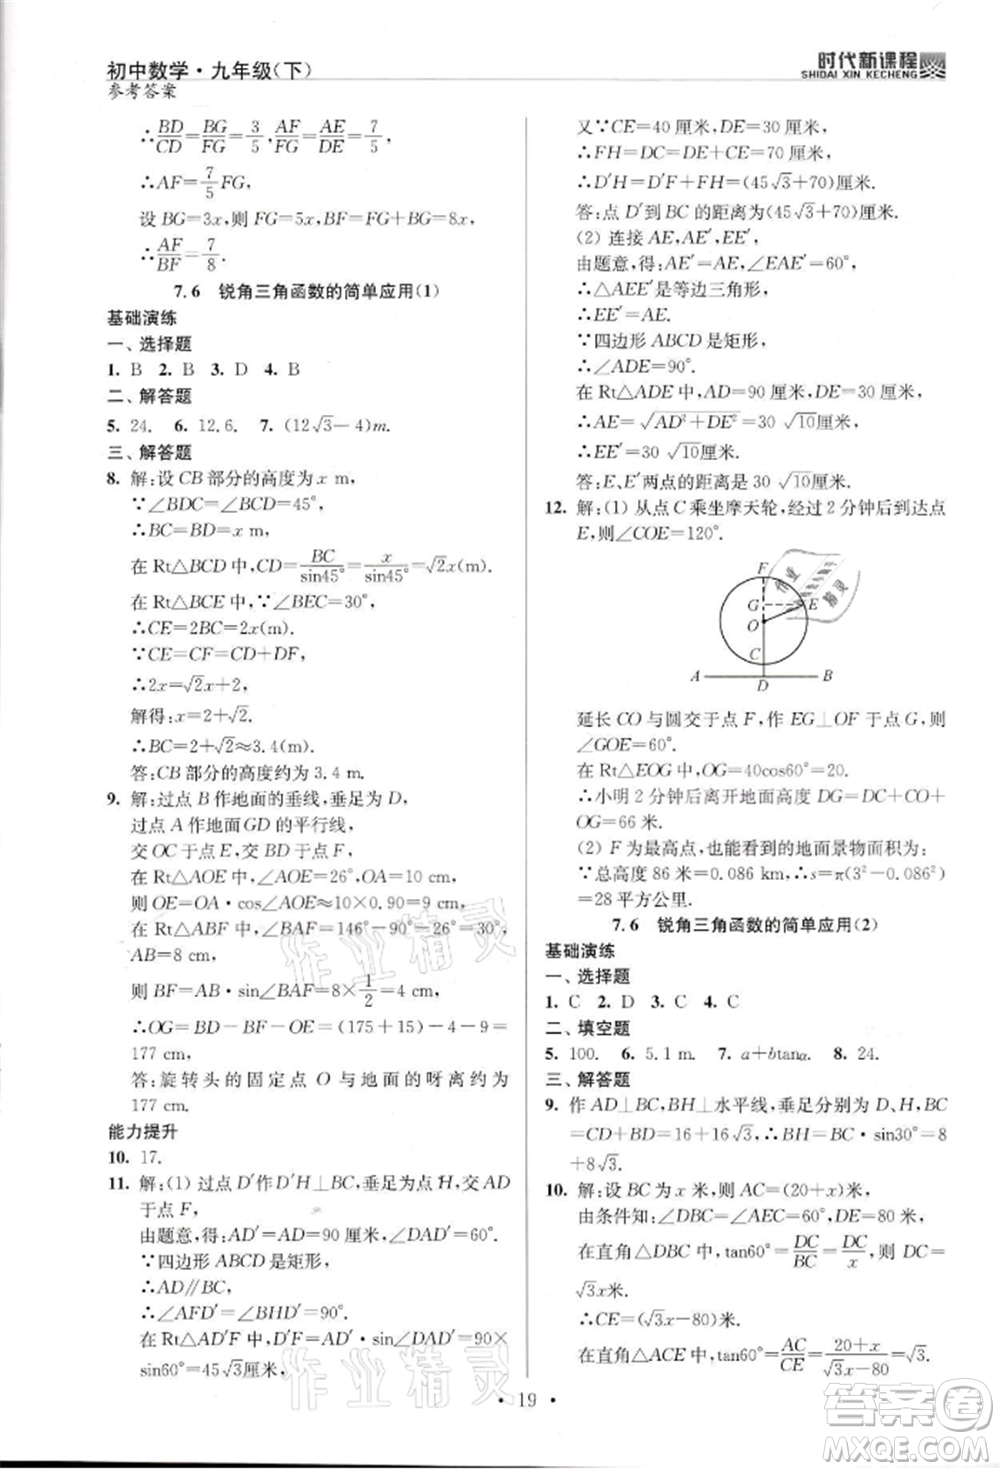 初中数学·九年级(下)
参考答案
时代新课程
SHIDAI XIN KECHENG
∴BD/CD=BG/FG=3/5,AF/FG=AE/DE=7/5,
∴AF=7/5FG,
设 BG=3x,则 FG=5x,BF=FG+BG=8x,
∴AF/BF=7/8.
7.6 锐角三角函数的简单应用(1)
基础演练
一、选择题
1. B 2. B 3. D 4. B
二、解答题
5. 24. 6. 12.6. 7. (12√3-4)m.
三、解答题
8. 解:设 CB 部分的高度为 x m,
∵∠BDC=∠BCD=45°,
∴BC=BD=x m,
在 Rt△BCD 中,CD=BC/sin45°=x/sin45°=√2x(m).
在 Rt△BCE 中,∵∠BEC=30°,
∴CE=2BC=2x(m).
∵CE=CF=CD+DF,
∴2x=√2x+2,
解得:x=2+√2.
∴BC=2+√2≈3.4(m).
答:CB 部分的高度约为 3.4 m.
9. 解:过点 B 作地面的垂线,垂足为 D,
过点 A 作地面 GD 的平行线,
交 OC 于点 E,交 BD 于点 F,
在 Rt△AOE 中,∠AOE=26°,OA=10,
则 OE=OA·cos∠AOE≈10×0.90=9 cm,
在 Rt△ABF 中,∠BAF=146°-90°-26°=30°,
AB=8 cm,
则 BF=AB·sin∠BAF=8×1/2=4 cm,
∴OG=BD-BF-OE=(175+15)-4-9=
177 cm,
答:旋转头的固定点 O 与地面的呀离约为
177 cm.
能力提升
10. 17.
11. 解:(1) 过点 D′作 D′H⊥BC,垂足为点 H,交 AD
于点 F,
由题意,得:AD′=AD=90 厘米,∠DAD′=60°.
∵四边形 ABCD 是矩形,
∴AD∥BC,
∴∠AFD′=∠BHD′=90°.
在 Rt△AD′F 中,D′F=AD′·sin∠DAD′=90×
sin60°=45√3厘米.
又∵CE=40 厘米,DE=30 厘米,
∴FH=DC=DE+CE=70 厘米.
∴D′H=D′F+FH=(45√3+70)厘米.
答:点 D′到 BC 的距离为(45√3+70)厘米.
(2) 连接 AE,AE′,EE′,
由题意,得:AE′=AE,∠EAE′=60°,
∴△AEE′是等边三角形,
∴EE′=AE.
∵四边形 ABCD 是矩形,
∴∠ADE=90°.
在 Rt△ADE 中,AD=90 厘米,DE=30 厘米,
∴AE=√AD²+DE²=30√10厘米.
∴EE′=30√10厘米.
答:E、E′两点的距离是 30√10厘米.
12. 解:(1) 从点 C 乘坐摩天轮,经过 2 分钟后到达点
E,则∠COE=120°.
F
G
E
O
C
A
D
B
延长 CO 与圆交于点 F,作 EG⊥OF 于点 G,则
∠GOE=60°.
在 Rt△EOG 中,OG=40cos60°=20.
∴小明 2 分钟后离开地面高度 DG=DC+CO+
OG=66 米.
(2) F 为最高点,他能看到的地面景物面积为:
∵总高度 86 米=0.086 km,∴s=π(3²-0.086²)
=28 平方公里.
7.6 锐角三角函数的简单应用(2)
基础演练
一、选择题
1. C 2. D 3. C 4. C
二、填空题
5. 100. 6. 5.1 m. 7. a+btanα. 8. 24.
三、解答题
9. 作 AD⊥BC,BH⊥水平线,垂足分别为 D、H,BC
=CD+BD=16+16√3,∴BH=BC·sin30°=8
+8√3.
10. 解:设 BC 为 x 米,则 AC=(20+x)米,
由条件知:∠DBC=∠AEC=60°,DE=80 米,
在直角△DBC 中,tan60°=DC/BC=DC/x,则 DC=
√3x米.
∴CE=(√3x-80)米.
在直角△ACE 中,tan60°=AC/CE=20+x/√3x-80=√3.
·19·
作业精灵
作业精灵
作业精灵
答案圈
MXQE.COM